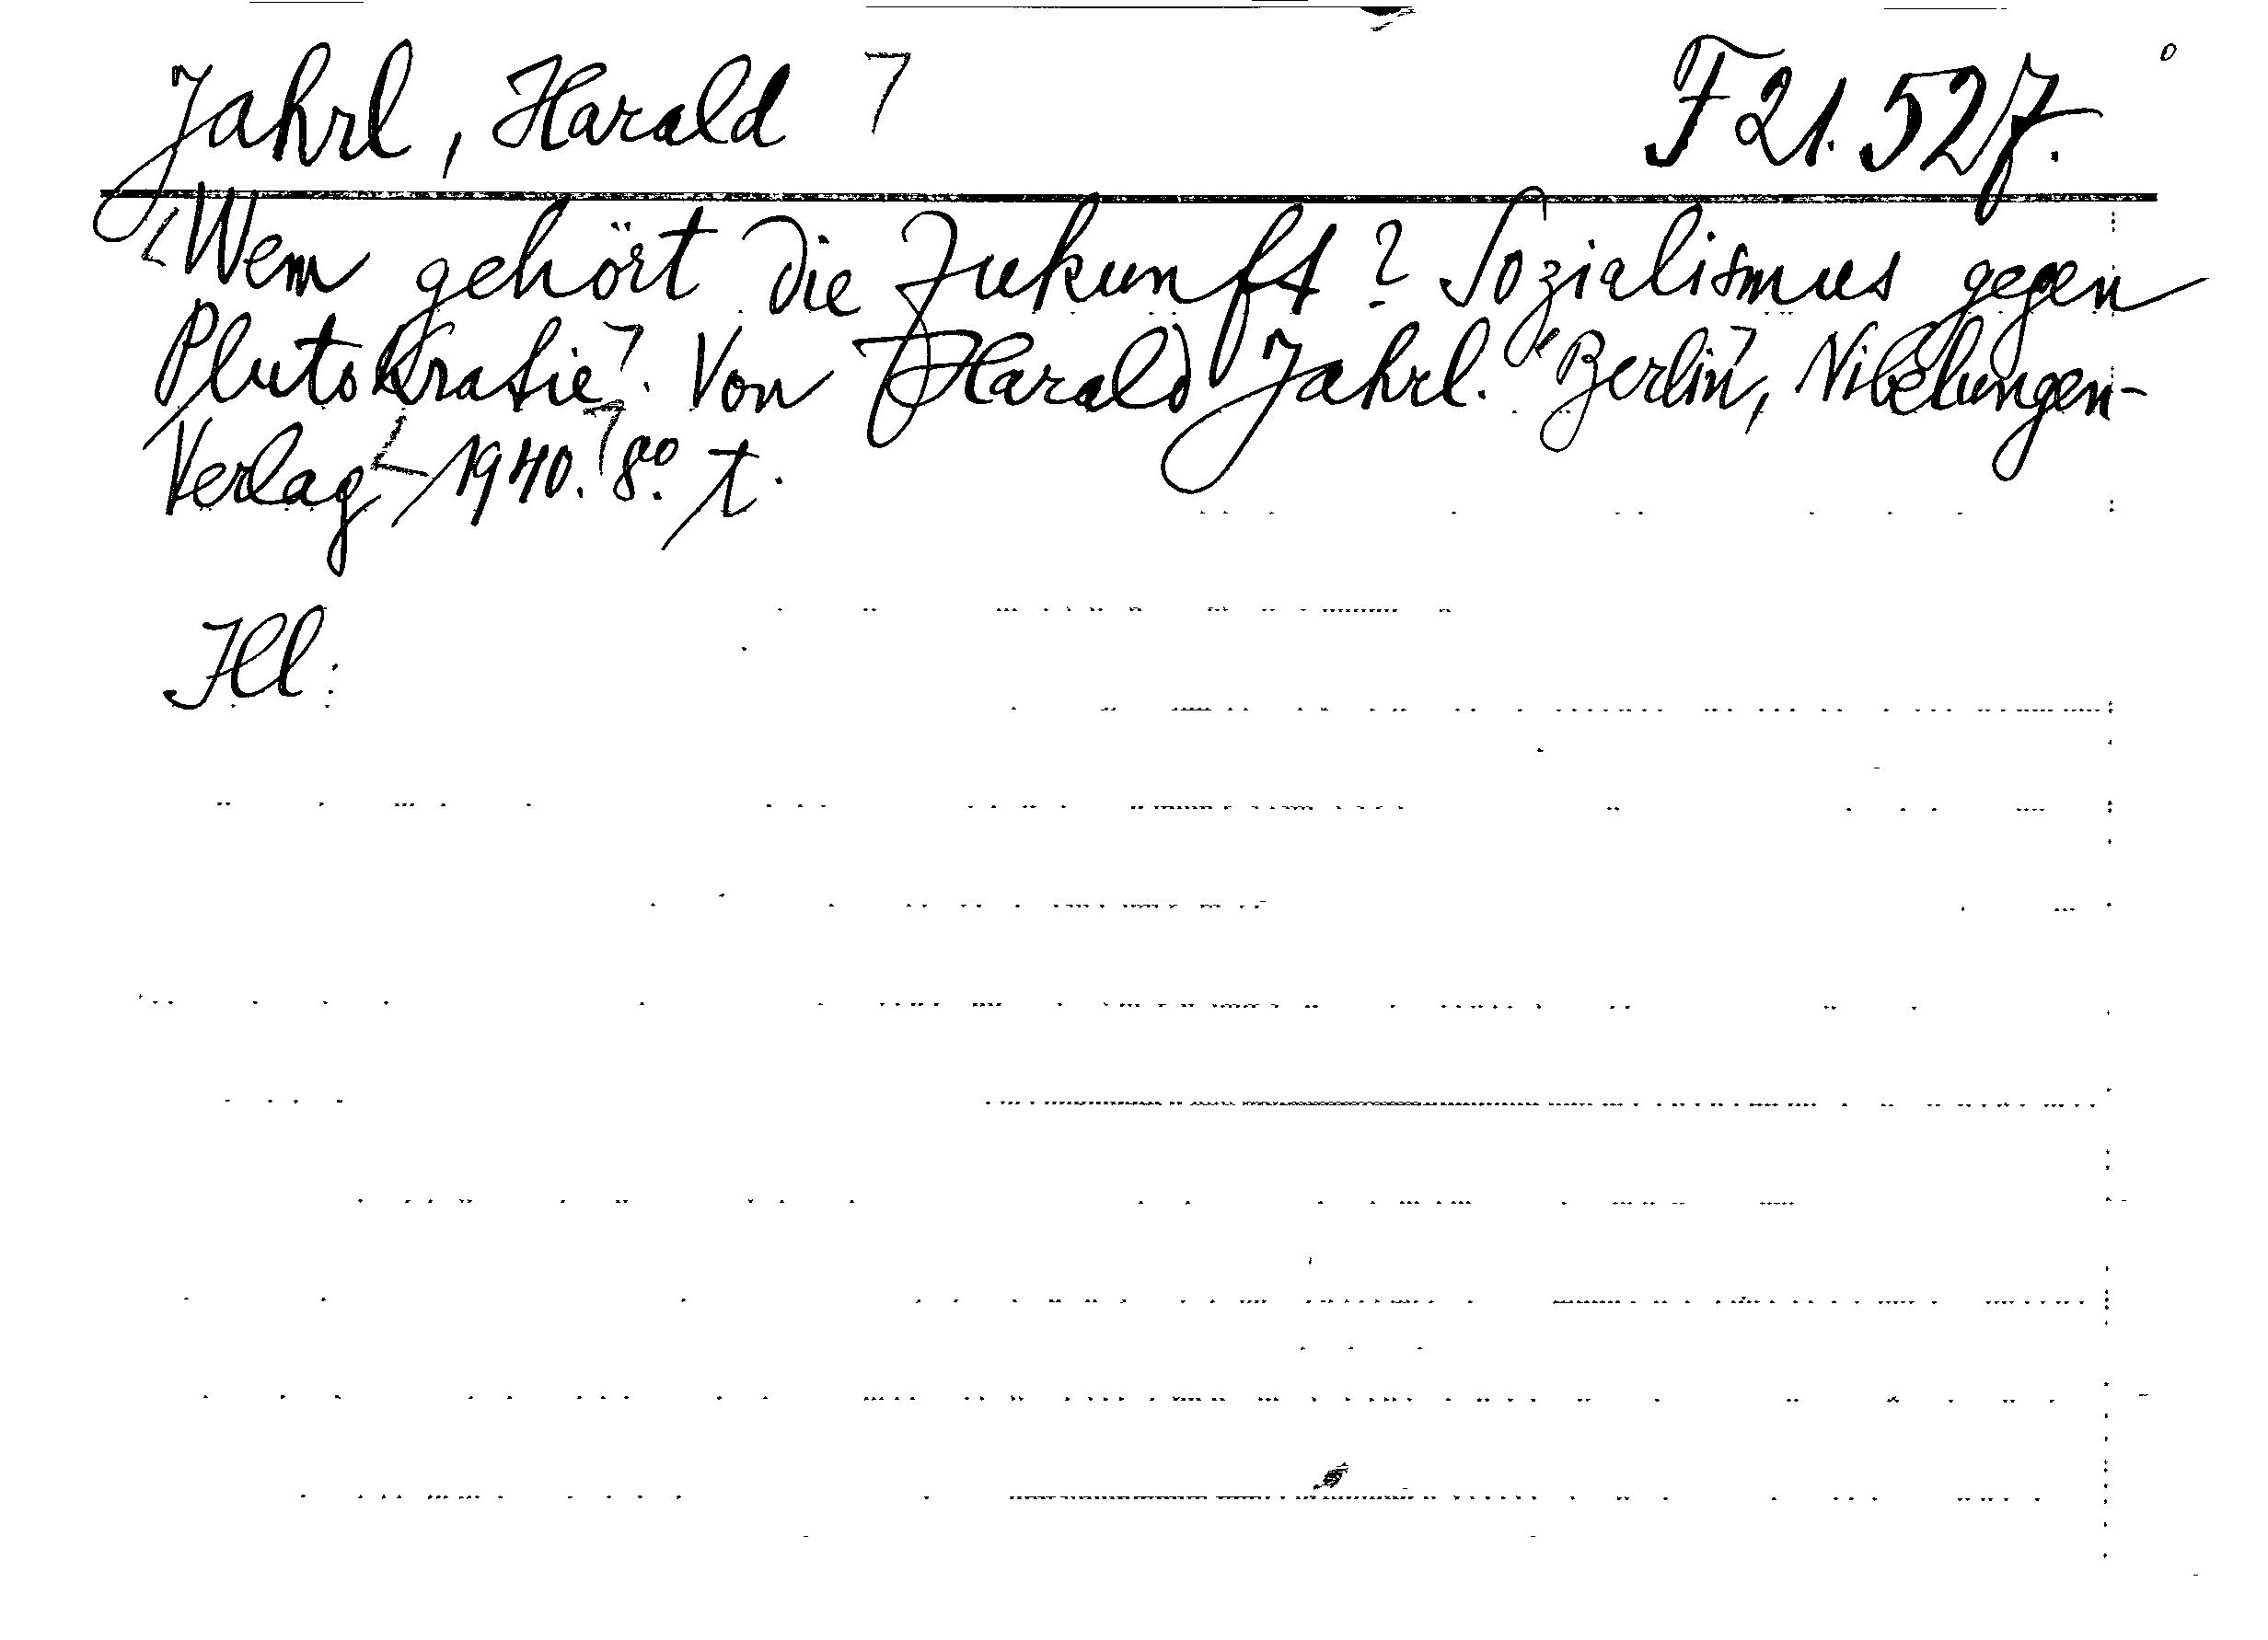 Jahrl, Harald F 21.527.
Wem gehört die Zukunft? Sozialismus gegen
Plutokratie. Von Harald Jahrl. Berlin, Nibelungen-
Verlag 1940. 8°. t.
Ill: